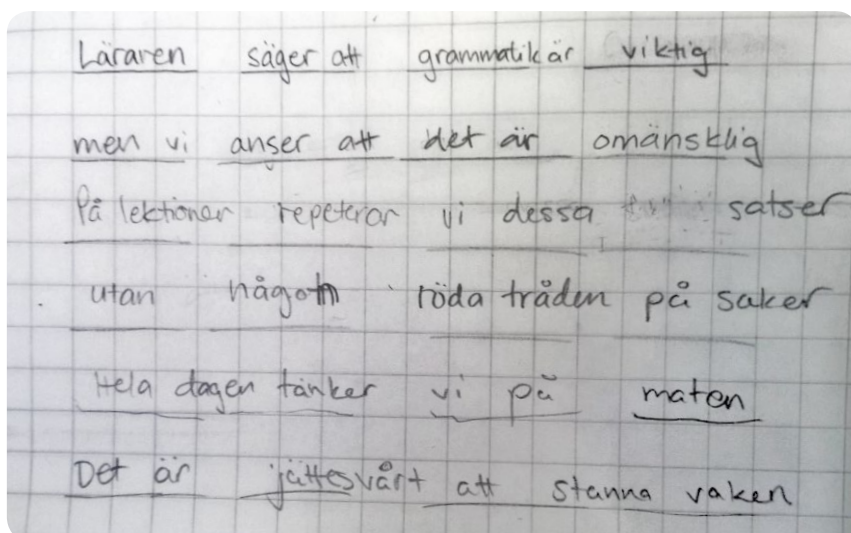 Läraren säger att grammatik är viktig
men vi anser att det är omänsklig
På lektioner repeterar vi dessa satser
utan någon röda tråden på saker
Hela dagen tänker vi på maten
Det är jättesvårt att stanna vaken